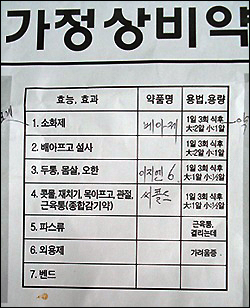 가정상비약
효능, 효과 약품명 용법,용량
1. 소화제 베아제 1일 3회 식후
大:1알 小:1알
2. 배아프고 설사 1일 3회 식후
大:2알 小:1알
3. 두통, 몸살, 오한 이지엔 6 1일 3회 식후
大:1알 小:½알
4. 콧물, 재치기, 목아프고, 관절,
근육통(종합감기약) 씨콜드 1일 3회 식후
大:1알 小:½알
5. 파스류 근육통,
결리는데
6. 외용제 가려움증
7. 벤드